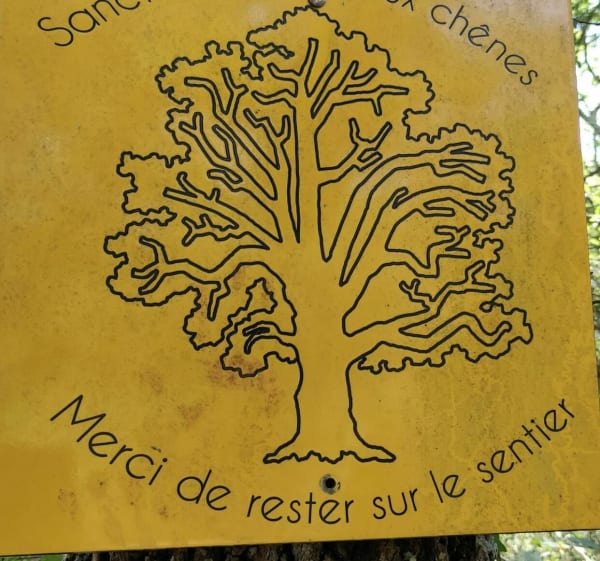 chênes
Merci de rester sur le sentier